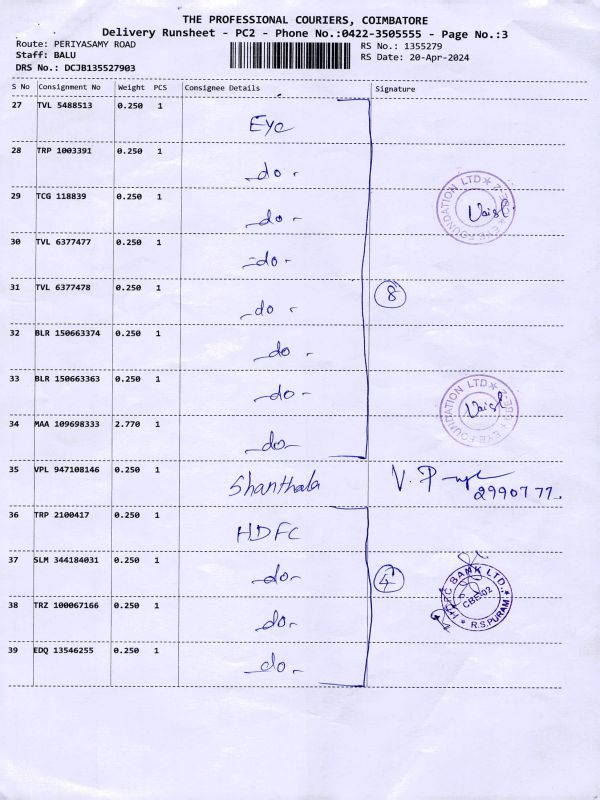 THE PROFESSIONAL COURIERS, COIMBATORE
Delivery Runsheet - PC2 - Phone No.:0422-3505555 - Page No.:3
Route: PERIYASAMY ROAD
Staff: BALU
DRS No.: DCJB135527903
RS No.: 1355279
RS Date: 20-Apr-2024
S No Consignment No Weight PCS Consignee Details Signature
27 TVL 5488513 0.250 1 Eye
28 TRP 1003391 0.250 1 -do-
29 TCG 118839 0.250 1 -do-
30 TVL 6377477 0.250 1 -do-
31 TVL 6377478 0.250 1 -do- 8
32 BLR 150663374 0.250 1 -do-
33 BLR 150663363 0.250 1 -do-
34 MAA 109698333 2.770 1 -do-
35 VPL 947108146 0.250 1 Shanthala V. P
2990777.
36 TRP 2100417 0.250 1 HDFC
37 SLM 344184031 0.250 1 -do- 4
HDFC BANK LTD. CBE-02 * R.S.PURAM *
38 TRZ 100067166 0.250 1 -do-
39 EDQ 13546255 0.250 1 -do-